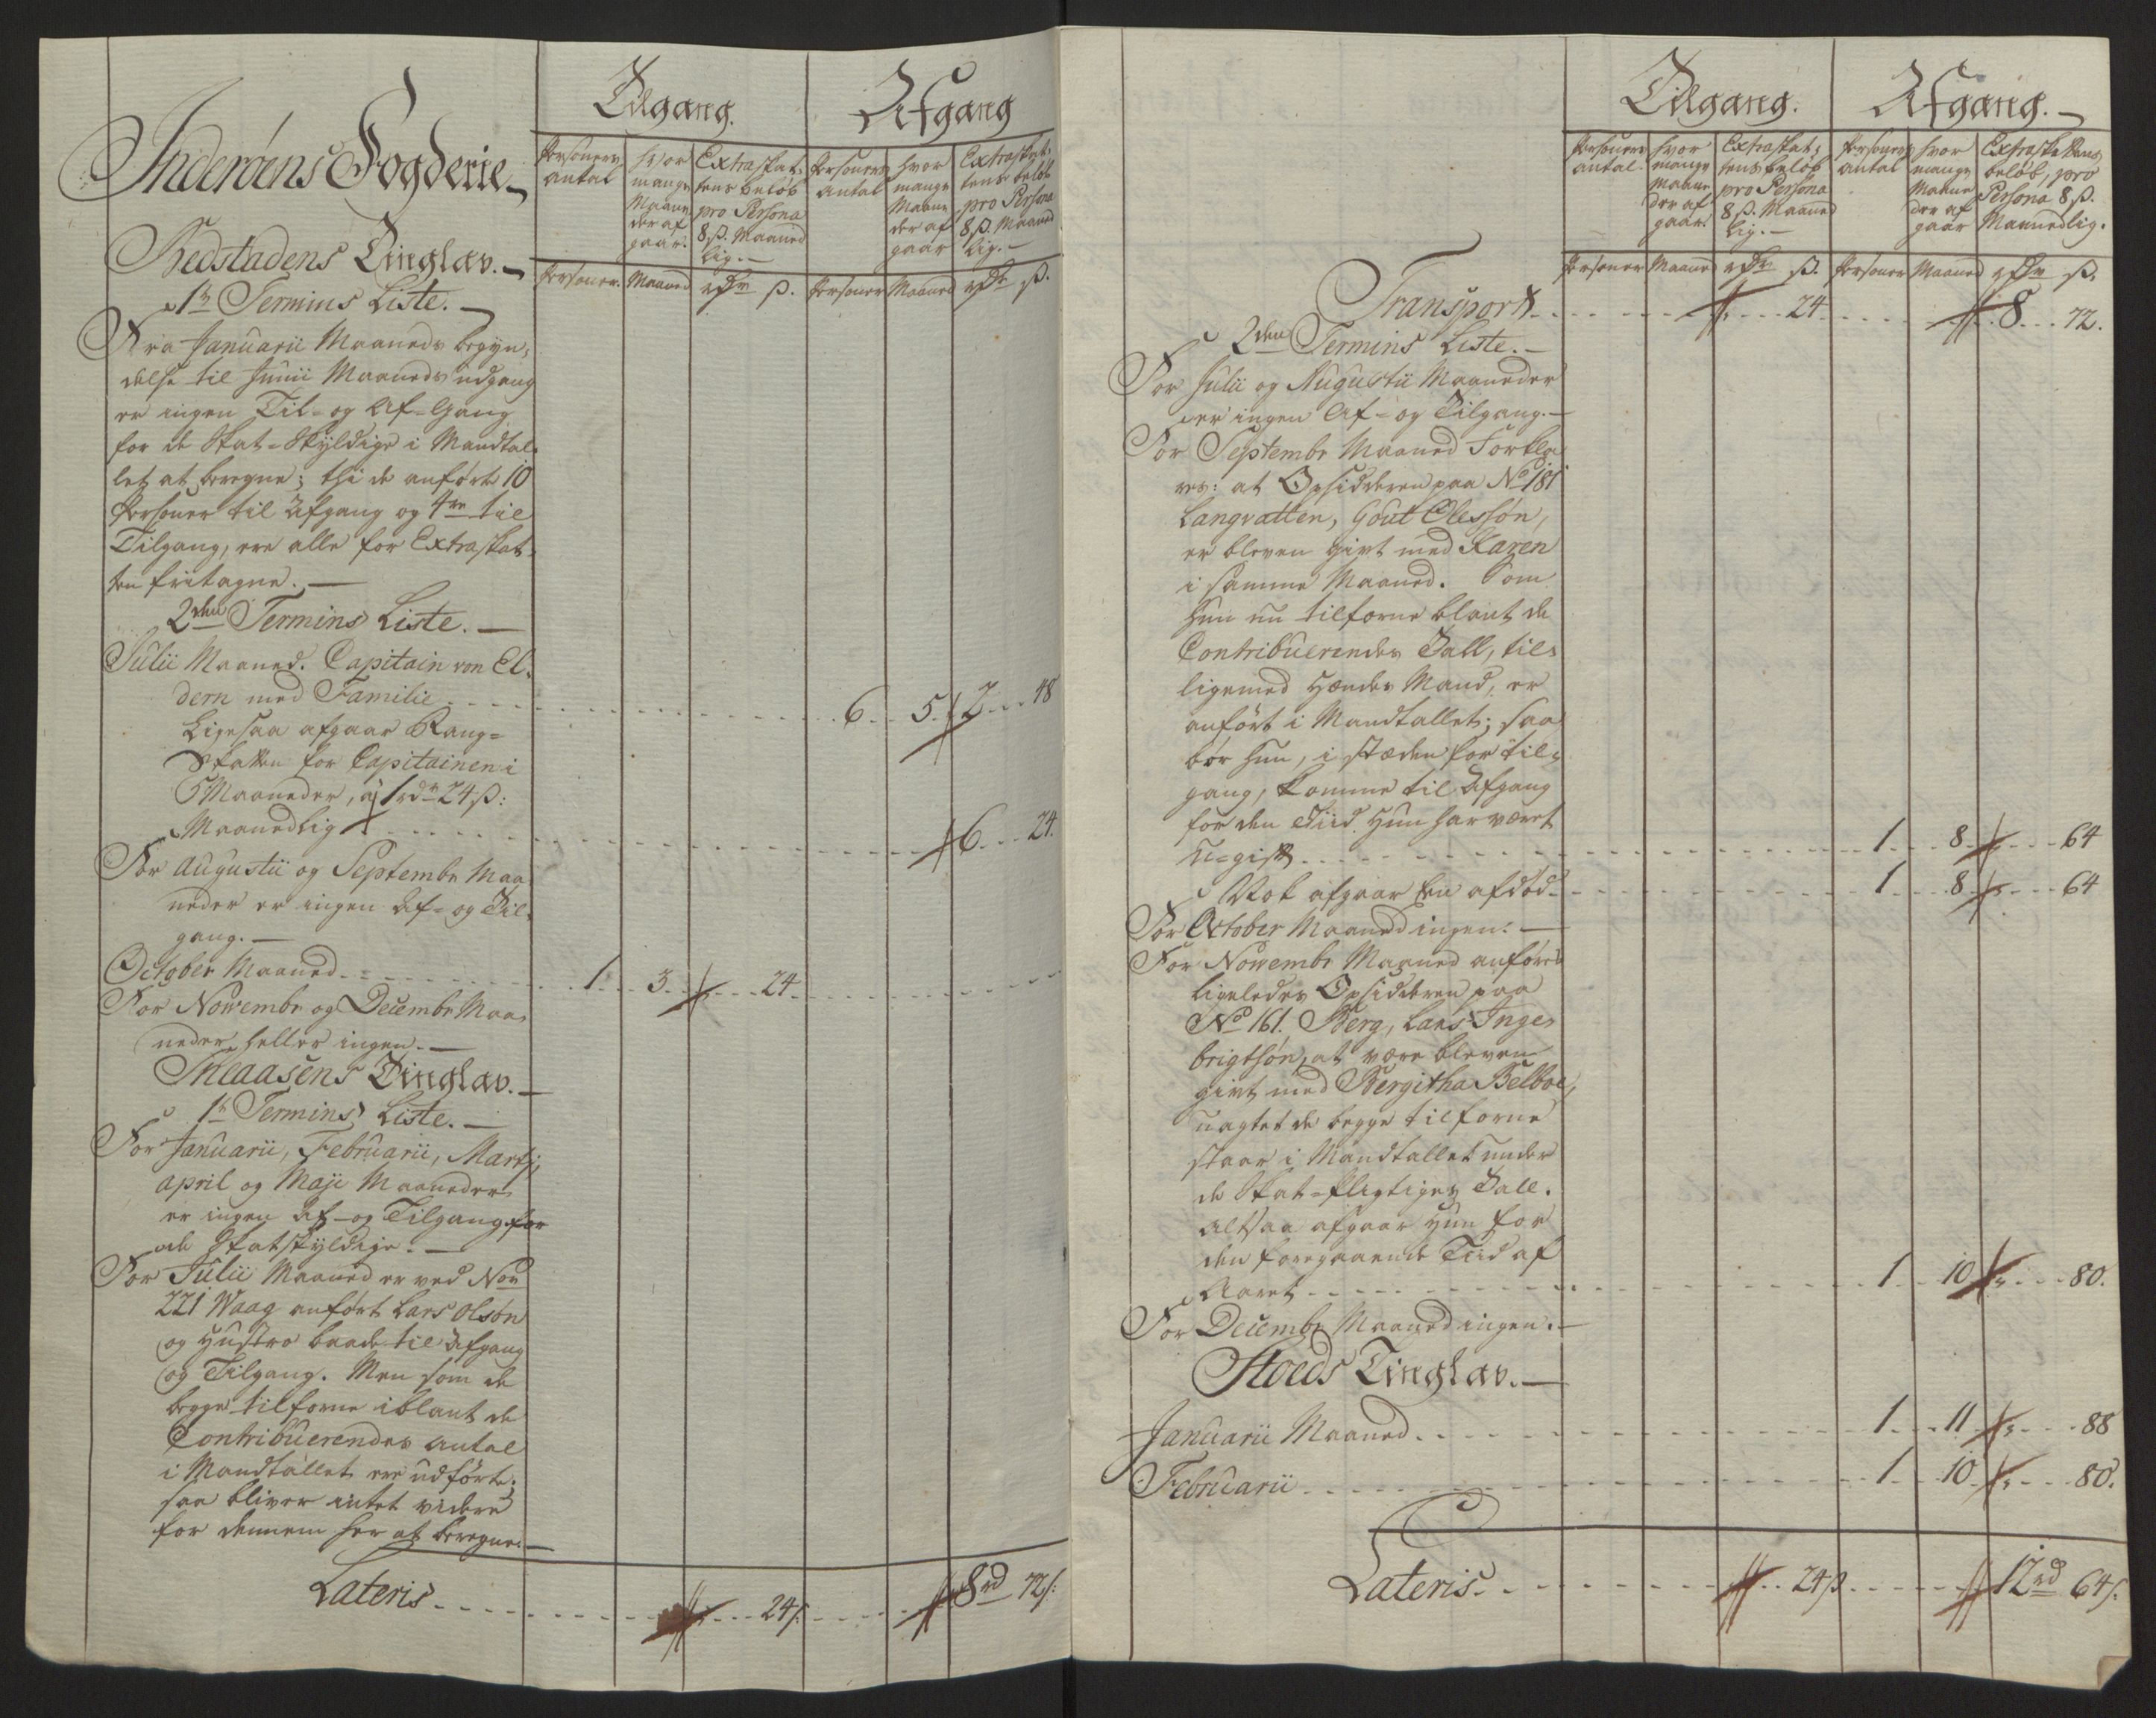 Tilgang.
Afgang
Inderöens Fogderie
Personers Antal
hvor mange Maaneder af gaar.
Extraskattens beløb pro Persona 8 ß. Maanedlig.
Personers Antal
hvor mange Maaneder af gaar
Extraskattens beløb pro Persona 8 ß. Maanedlig.
Personer. Maaned rdr ß. Personer Maaned rdr ß.
Bedstadens Tinglav.
1te Termins Liste.
Fra Januarii Maaneds begyn-
delse til Junii Maaneds udgang
er ingen Til- og Af-Gang
for de Skat-Skyldige i Mandtal-
let at beregne; thi de anførte 10
Personer til Afgang og 4re til
Tilgang, ere alle for Extraskat-
ten fritagne.
2den Termins Liste.
Julii Maaned. Capitain von El-
dern med Familie 6 5 2 48
Ligesaa afgaar Rang-
Skatten for Capitainen i
5 Maaneder, a 1 rdr 24 ß:
Maanedlig 6 24.
For Augustii og Septembr Maa-
neder er ingen Af- og Til-
gang.
October Maaned 1 3 24
For Novembr og Decembr Maa-
neder heller ingen.
Sneaasens Tinglav.
1te Termins Liste.
For Januarii, Februarii, Martj,
April og Maji Maaneder
er ingen Af- og Tilgang for
de Skatskyldige.
For Julii Maaned er ved No
221 Waag anført Lars Olsøn
og Hustro baade til Afgang
og Tilgang. Men som de
begge tilforne iblant de
Contribuerendes Antal
i Mandtallet ere udførte;
saa bliver intet videre
for dennem her at beregne.
Lateris 24 ß. 8 rd 72 ß:
Tilgang.
Afgang.
Personers antal.
hvor mange Maaneder af gaar.
Extraskattens beløb pro Persona 8 ß. Maanedlig.
Personers antal
hvor mange Maaneder af gaar
Extraskattens beløb, pro Persona 8 ß. Maanedlig.
Personer Maaned rdr ß. Personer Maaned rdr ß.
Transport 24 8 72.
2den Termins Liste.
For Julii og Augustii Maaneder
er ingen Af- og Tilgang.
For Septembr Maaned Forkla-
res: at Opsidderen paa No 181
Langvatten, Gout Olessøn,
er bleven givt med Karen
i samme Maaned. Som
hun nu tilforne blant de
Contribuerendes Tall, til-
ligemed hendes Mand, er
anført i Mandtallet; saa
bør hun, i stæden for til-
gang, komme til Afgang
for den Tiid Hun har været
u-gift 1 8 64
Nok afgaar En afdød 1 8 64
For October Maaned ingen.
For Novembr Maaned anføres
ligeledes Opsidderen paa
No 161. Berg, Lars Inge-
brigtsøn, at være bleven
givt med Bergitha Belboe,
uagtet de begge tilforne
staar i Mandtallet under
de Skat-Pligtiges Tall.
Altsaa afgaar Hun for
den foregaaende Tiid af
Aaret 1 10 80.
For Decembr Maaned ingen.
Stoeds Tinglav.
Januarii Maaned 1 11 88
Februarii 1 10 80.
Lateris 24 ß 12 rd 64 ß.